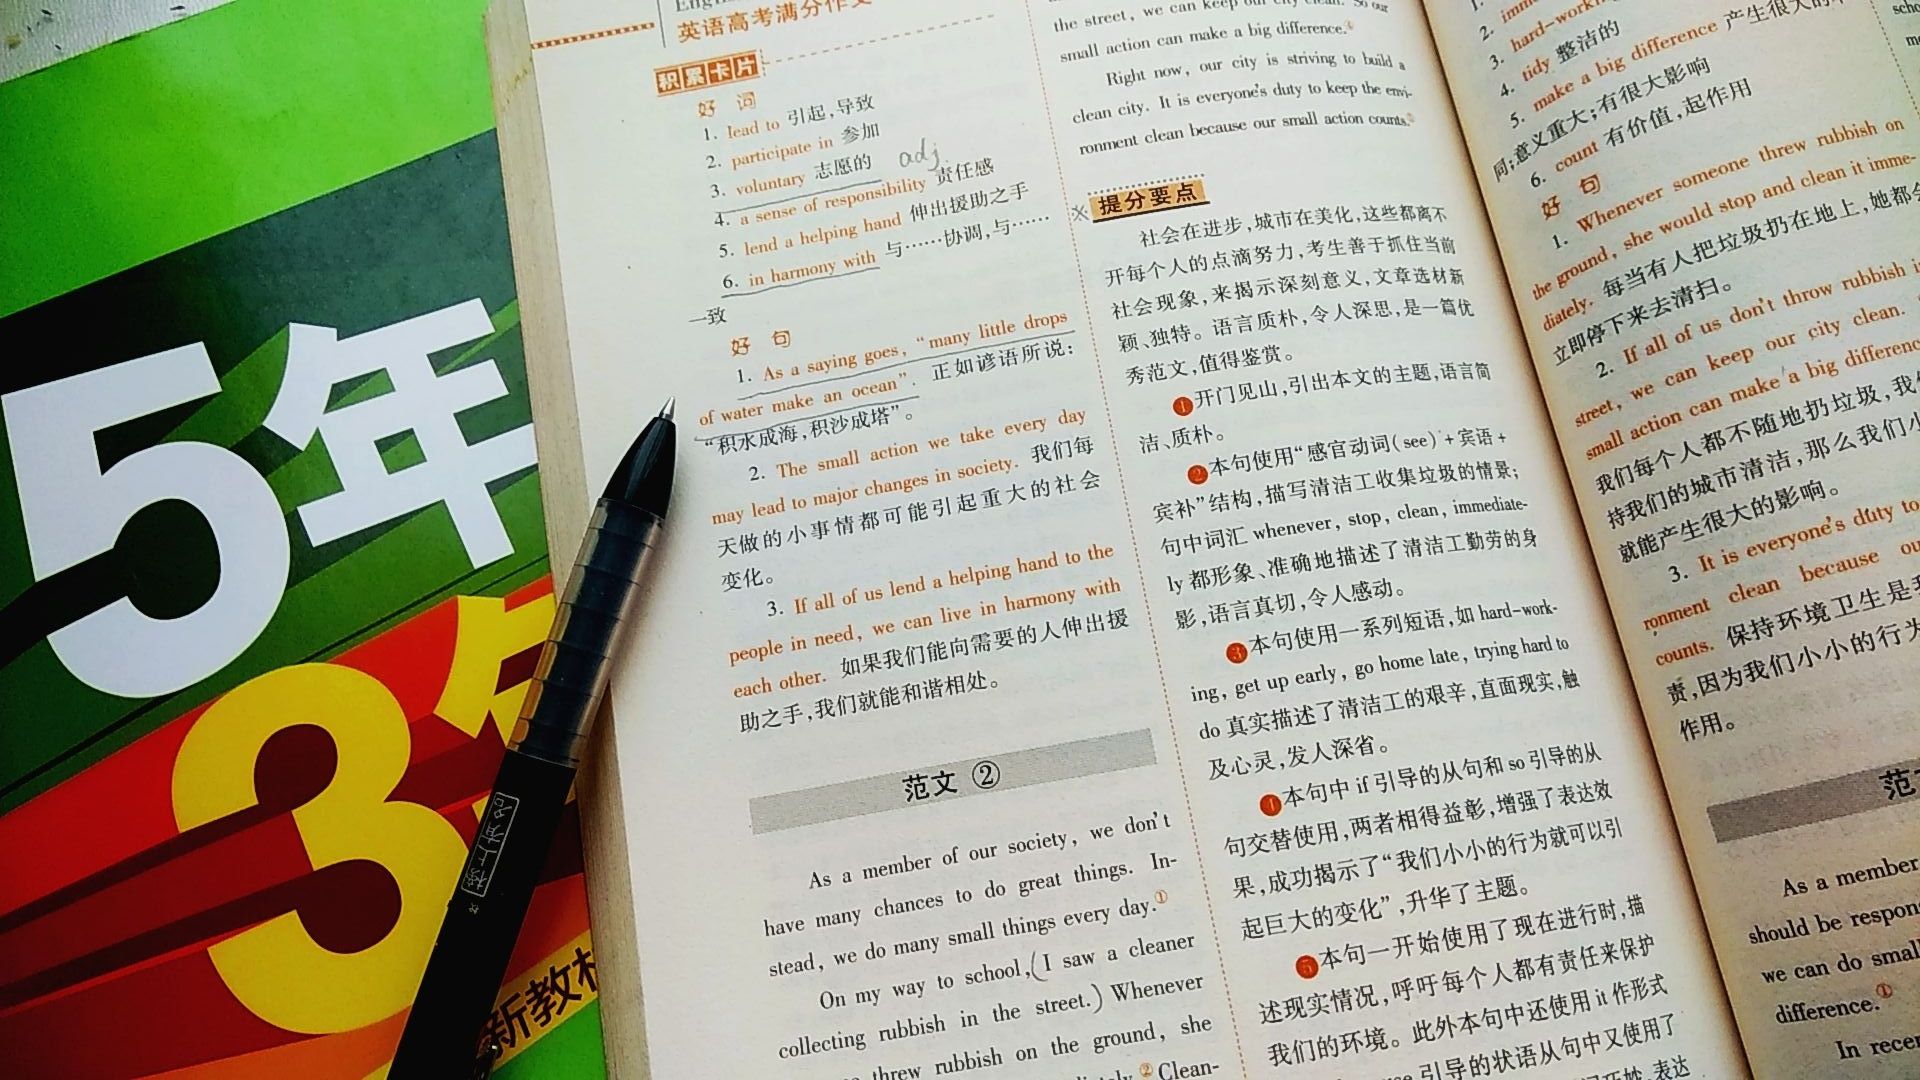 5年
3
新教材
英语高考满分作文
积累卡片
好 词
1. lead to 引起,导致
2. participate in 参加
3. voluntary 志愿的 adj.
4. a sense of responsibility 责任感
5. lend a helping hand 伸出援助之手
6. in harmony with 与……协调,与……
一致
好 句
1. As a saying goes, “many little drops
of water make an ocean”. 正如谚语所说:
“积水成海,积沙成塔”。
2. The small action we take every day
may lead to major changes in society. 我们每
天做的小事情都可能引起重大的社会
变化。
3. If all of us lend a helping hand to the
people in need, we can live in harmony with
each other. 如果我们能向需要的人伸出援
助之手,我们就能和谐相处。
范文 ②
As a member of our society, we don't
have many chances to do great things. In-
stead, we do many small things every day.①
On my way to school,(I saw a cleaner
collecting rubbish in the street.) Whenever
threw rubbish on the ground, she
② Clean-
the street, we can keep our city clean. So our
small action can make a big difference.④
Right now, our city is striving to build a
clean city. It is everyone's duty to keep the envi-
ronment clean because our small action counts.⑤
※ 提分要点
社会在进步,城市在美化,这些都离不
开每个人的点滴努力,考生善于抓住当前
社会现象,来揭示深刻意义,文章选材新
颖、独特。语言质朴,令人深思,是一篇优
秀范文,值得鉴赏。
❶开门见山,引出本文的主题,语言简
洁、质朴。
❷本句使用“感官动词(see)+宾语+
宾补”结构,描写清洁工收集垃圾的情景;
句中词汇 whenever, stop, clean, immediate-
ly 都形象、准确地描述了清洁工勤劳的身
影,语言真切,令人感动。
❸本句使用一系列短语,如 hard-work-
ing, get up early, go home late, trying hard to
do 真实描述了清洁工的艰辛,直面现实,触
及心灵,发人深省。
❹本句中 if 引导的从句和 so 引导的从
句交替使用,两者相得益彰,增强了表达效
果,成功揭示了“我们小小的行为就可以引
起巨大的变化”,升华了主题。
❺本句一开始使用了现在进行时,描
述现实情况,呼吁每个人都有责任来保护
我们的环境。此外本句中还使用 it 作形式
引导的状语从句中又使用了
表达
2. hard-working
3. tidy 整洁的
4. make a big difference 产生很大的
5.
同;意义重大;有很大影响
6. count 有价值,起作用
好 句
1. Whenever someone threw rubbish on
the ground, she would stop and clean it imme-
diately. 每当有人把垃圾扔在地上,她都会
立即停下来去清扫。
2. If all of us don't throw rubbish in
street, we can keep our city clean.
small action can make a big difference
我们每个人都不随地扔垃圾,我
持我们的城市清洁,那么我们小
就能产生很大的影响。
3. It is everyone's duty to
ronment clean because ou
counts. 保持环境卫生是我
责,因为我们小小的行为
作用。
范
As a member
should be respons
we can do small
difference.①
In recen